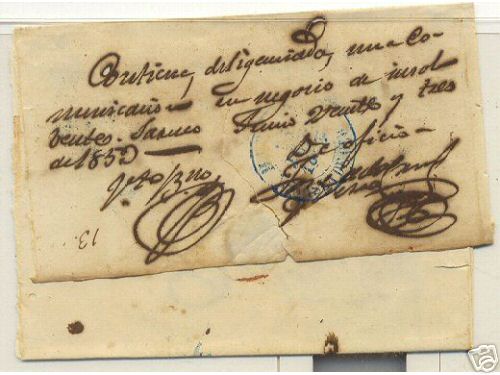 Contiene, diligenciada, una Co-
municacion en negocio de insol
vente. Jaruco Junio Veinte y tres
de 1859
De oficio
Vto Bno
13